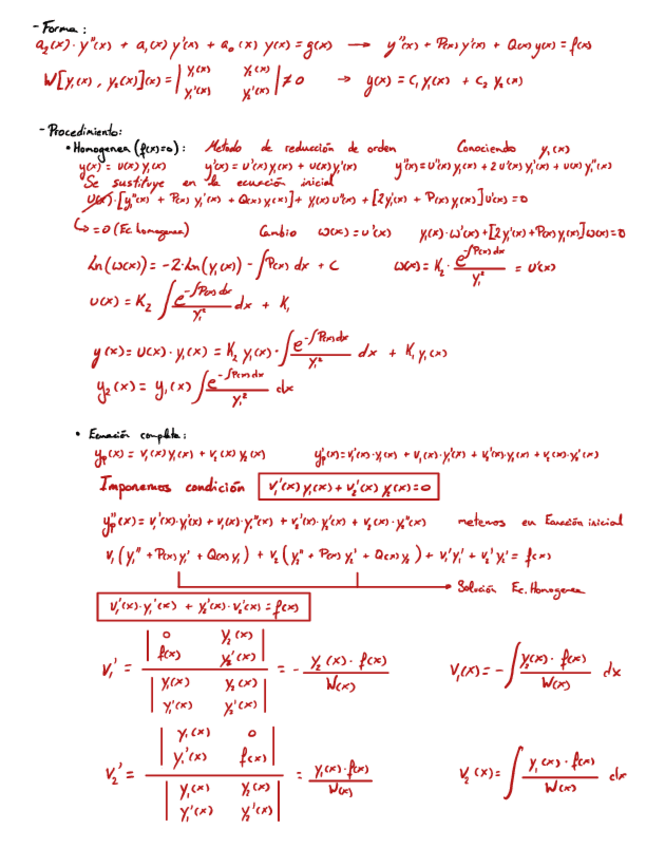 - Forma:
a₂(x)·y''(x) + a₁(x) y'(x) + a₀(x) y(x) = g(x) → y''(x) + P(x) y'(x) + Q(x) y(x) = f(x)
W[y₁(x), y₂(x)](x) = | y₁(x) y₂(x) ; y₁'(x) y₂'(x) | ≠ 0 → y(x) = C₁ y₁(x) + C₂ y₂(x)
- Procedimiento:
• Homogenea (f(x)=0): Metodo de reducción de orden Conociendo y₁(x)
y(x) = u(x) y₁(x) y'(x) = u'(x) y₁(x) + u(x) y₁'(x) y''(x) = u''(x) y₁(x) + 2 u'(x) y₁'(x) + u(x) y₁''(x)
Se sustituye en la ecuación inicial
u(x)·[y₁''(x) + P(x) y₁'(x) + Q(x) y₁(x)] + y₁(x) u''(x) + [2y₁'(x) + P(x) y₁(x)] u'(x) = 0
↳ = 0 (Ec. homogenea) Cambio ω(x) = u'(x) y₁(x)·ω'(x) + [2 y₁'(x) + P(x) y₁(x)] ω(x) = 0
Ln(ω(x)) = -2·Ln(y₁(x)) - ∫P(x) dx + C ω(x) = K₂ · e^(-∫P(x) dx) / y₁² = u'(x)
u(x) = K₂ ∫ e^(-∫P(x) dx) / y₁² dx + K₁
y(x) = u(x)·y₁(x) = K₂ y₁(x)·∫ e^(-∫P(x) dx) / y₁² dx + K₁ y₁(x)
y₂(x) = y₁(x) ∫ e^(-∫P(x) dx) / y₁² dx
• Ecuación completa:
yₚ(x) = v₁(x) y₁(x) + v₂(x) y₂(x) yₚ'(x) = v₁'(x)·y₁(x) + v₁(x)·y₁'(x) + v₂'(x)·y₂(x) + v₂(x)·y₂'(x)
Imponemos condición v₁'(x) y₁(x) + v₂'(x) y₂(x) = 0
yₚ''(x) = v₁'(x)·y₁'(x) + v₁(x)·y₁''(x) + v₂'(x)·y₂'(x) + v₂(x)·y₂''(x) metemos en Ecuación inicial
v₁(y₁'' + P(x) y₁' + Q(x) y₁) + v₂(y₂'' + P(x) y₂' + Q(x) y₂) + v₁'y₁' + v₂'y₂' = f(x)
Solución Ec. Homogenea
v₁'(x)·y₁'(x) + y₂'(x)·v₂'(x) = f(x)
v₁' = | 0 y₂(x) ; f(x) y₂'(x) | / | y₁(x) y₂(x) ; y₁'(x) y₂'(x) | = - y₂(x)·f(x) / W(x) v₁(x) = -∫ y₂(x)·f(x) / W(x) dx
v₂' = | y₁(x) 0 ; y₁'(x) f(x) | / | y₁(x) y₂(x) ; y₁'(x) y₂'(x) | = y₁(x)·f(x) / W(x) v₂(x) = ∫ y₁(x)·f(x) / W(x) dx